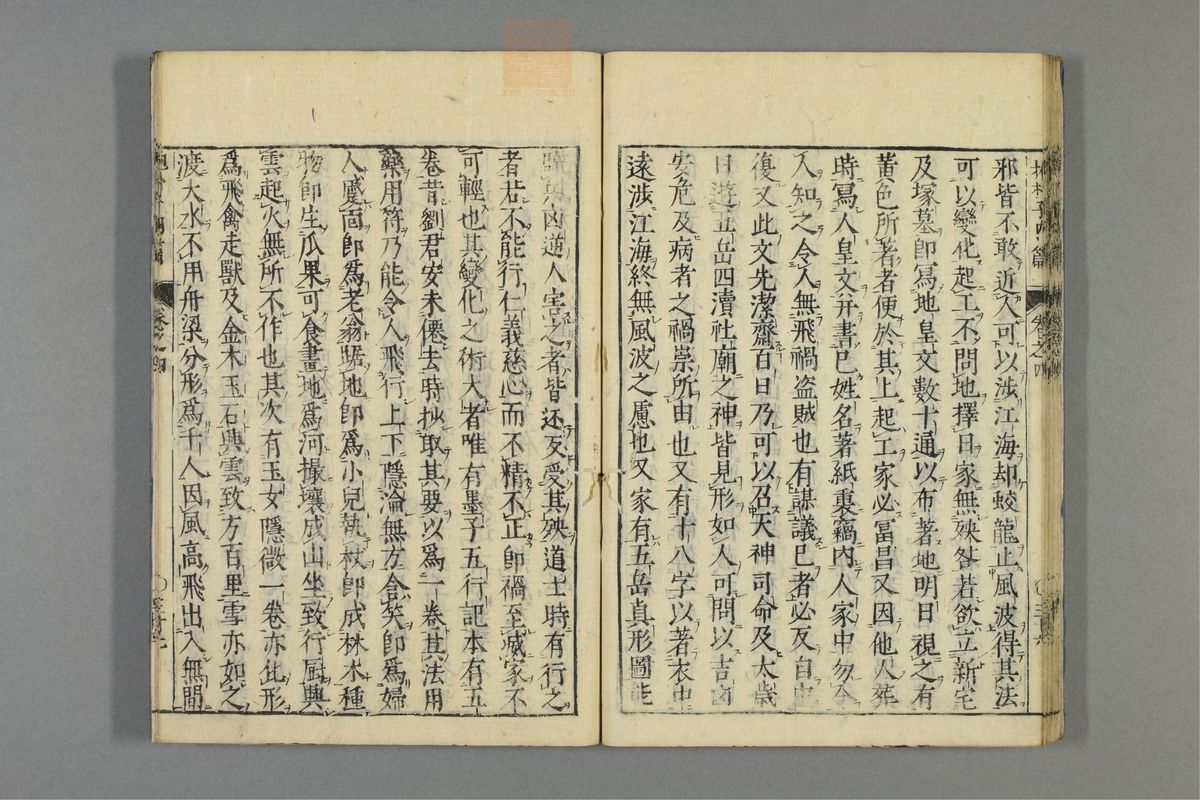 邪皆不敢近人可以渉江海却蛟龍止風波得其法
可以變化起工不問地擇日家無殃咎若欲立新宅
及塚墓即寫地皇文數十通以布著地明日視之有
黃色所著者便於其上起工家必冨昌又因他人葬
時寫人皇文并書已姓名著紙裹竊内人家中勿令
人知之令人無飛禍盗賊也有謀議已者必反自中
復又此文先潔齋百日乃可以召天神司命及太歳
日遊五岳四瀆社廟之神皆見形如人可問以吉凶
安危及病者之禍祟所由也又有十八字以著衣中
遠渉江海終無風波之慮也又家有五岳真形圖能
凶逆人害之者皆还反受其殃道士時有行之
者若不能行仁義慈心而不精不正即禍至滅家不
可輕也其變化之術大者唯有墨子五行記本有五
卷昔劉君安未僊去時抄取其要以爲一卷其法用
藥用符乃能令人飛行上下隱淪無方含笑即爲婦
人蹙面即爲老翁踞地即爲小兒執杖即成林木種
物即生瓜果可食畫地爲河撮壤成山坐致行厨興
雲起火無所不作也其次有玉女隱微一卷亦化形
爲飛禽走獸及金木玉石興雲致方百里雪亦如之
渡大水不用舟梁分形爲千人因風高飛出入無間